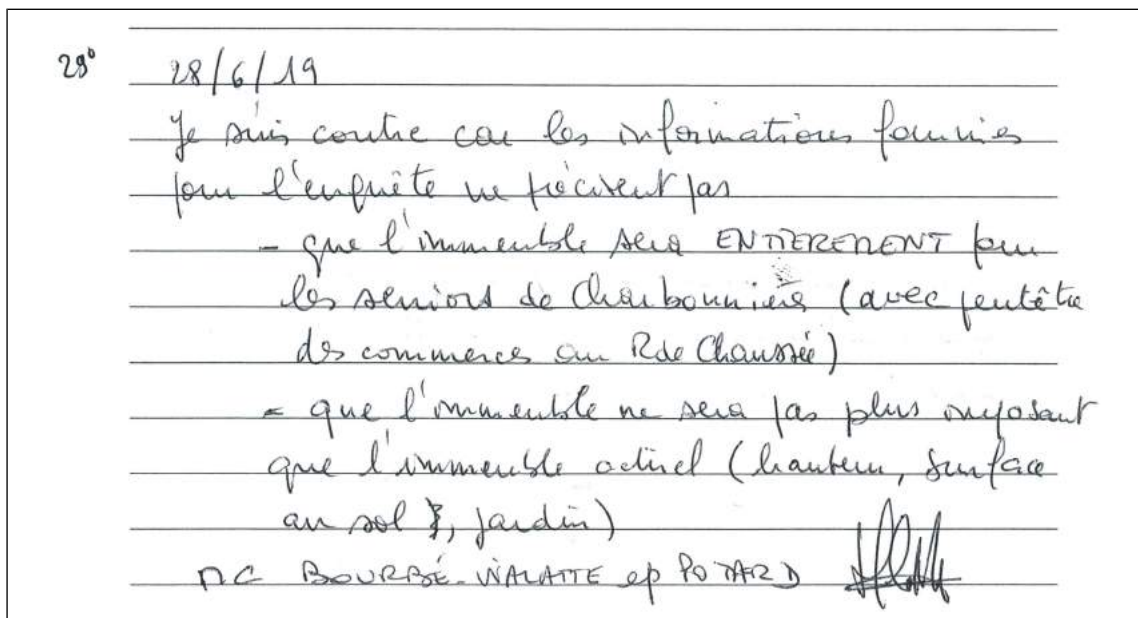 28° 28/6/19
Je suis contre car les informations fournies
pour l'enquête ne précisent pas
- que l'immeuble sera ENTIEREMENT pour
les seniors de Charbonnière (avec peutêtre
des commerces au R de Chaussée)
- que l'immeuble ne sera pas plus imposant
que l'immeuble actuel (hauteur, surface
au sol, jardin)
MC BOURBÉ-VIALATTE ep POTARD